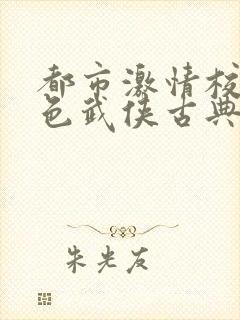 都市激情校
色武侠古典
朱光友